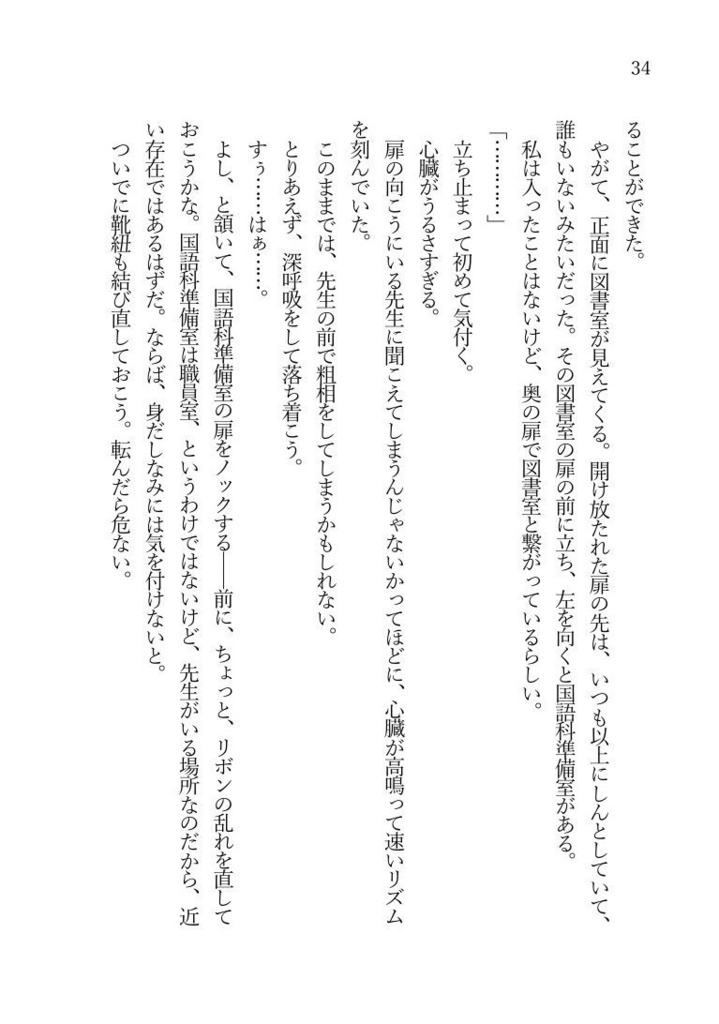 34
ることができた。
　やがて、正面に図書室が見えてくる。開け放たれた扉の先は、いつも以上にしんとしていて、
誰もいないみたいだった。その図書室の扉の前に立ち、左を向くと国語科準備室がある。
　私は入ったことはないけど、奥の扉で図書室と繋がっているらしい。
「…………」
　立ち止まって初めて気付く。
　心臓がうるさすぎる。
　扉の向こうにいる先生に聞こえてしまうんじゃないかってほどに、心臓が高鳴って速いリズム
を刻んでいた。
　このままでは、先生の前で粗相をしてしまうかもしれない。
　とりあえず、深呼吸をして落ち着こう。
　すぅ……はぁ……。
　よし、と頷いて、国語科準備室の扉をノックする――前に、ちょっと、リボンの乱れを直して
おこうかな。国語科準備室は職員室、というわけではないけど、先生がいる場所なのだから、近
い存在ではあるはずだ。ならば、身だしなみには気を付けないと。
　ついでに靴紐も結び直しておこう。転んだら危ない。